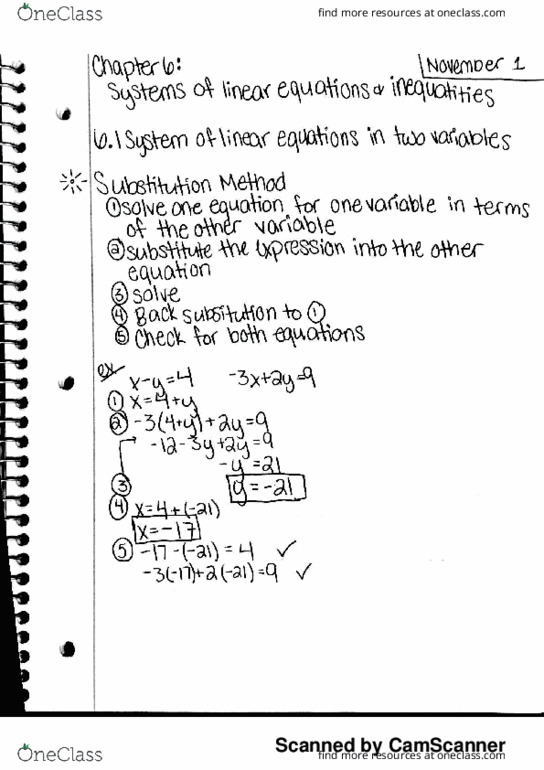 OneClass
find more resources at oneclass.com
Chapter 6:
November 1
Systems of linear equations & inequatities
6.1 System of linear equations in two variables
Substitution Method
① solve one equation for one variable in terms
of the other variable
② substitute the expression into the other
equation
③ solve
④ Back subsitution to ①
⑤ Check for both equations
ex
x-y=4 -3x+2y=9
① x=4+y
② -3(4+y)+2y=9
-12-3y+2y=9
-y=21
③ y=-21
④ x=4+(-21)
x=-17
⑤ -17-(-21)=4 ✓
-3(-17)+2(-21)=9 ✓
Scanned by CamScanner
OneClass
find more resources at oneclass.com